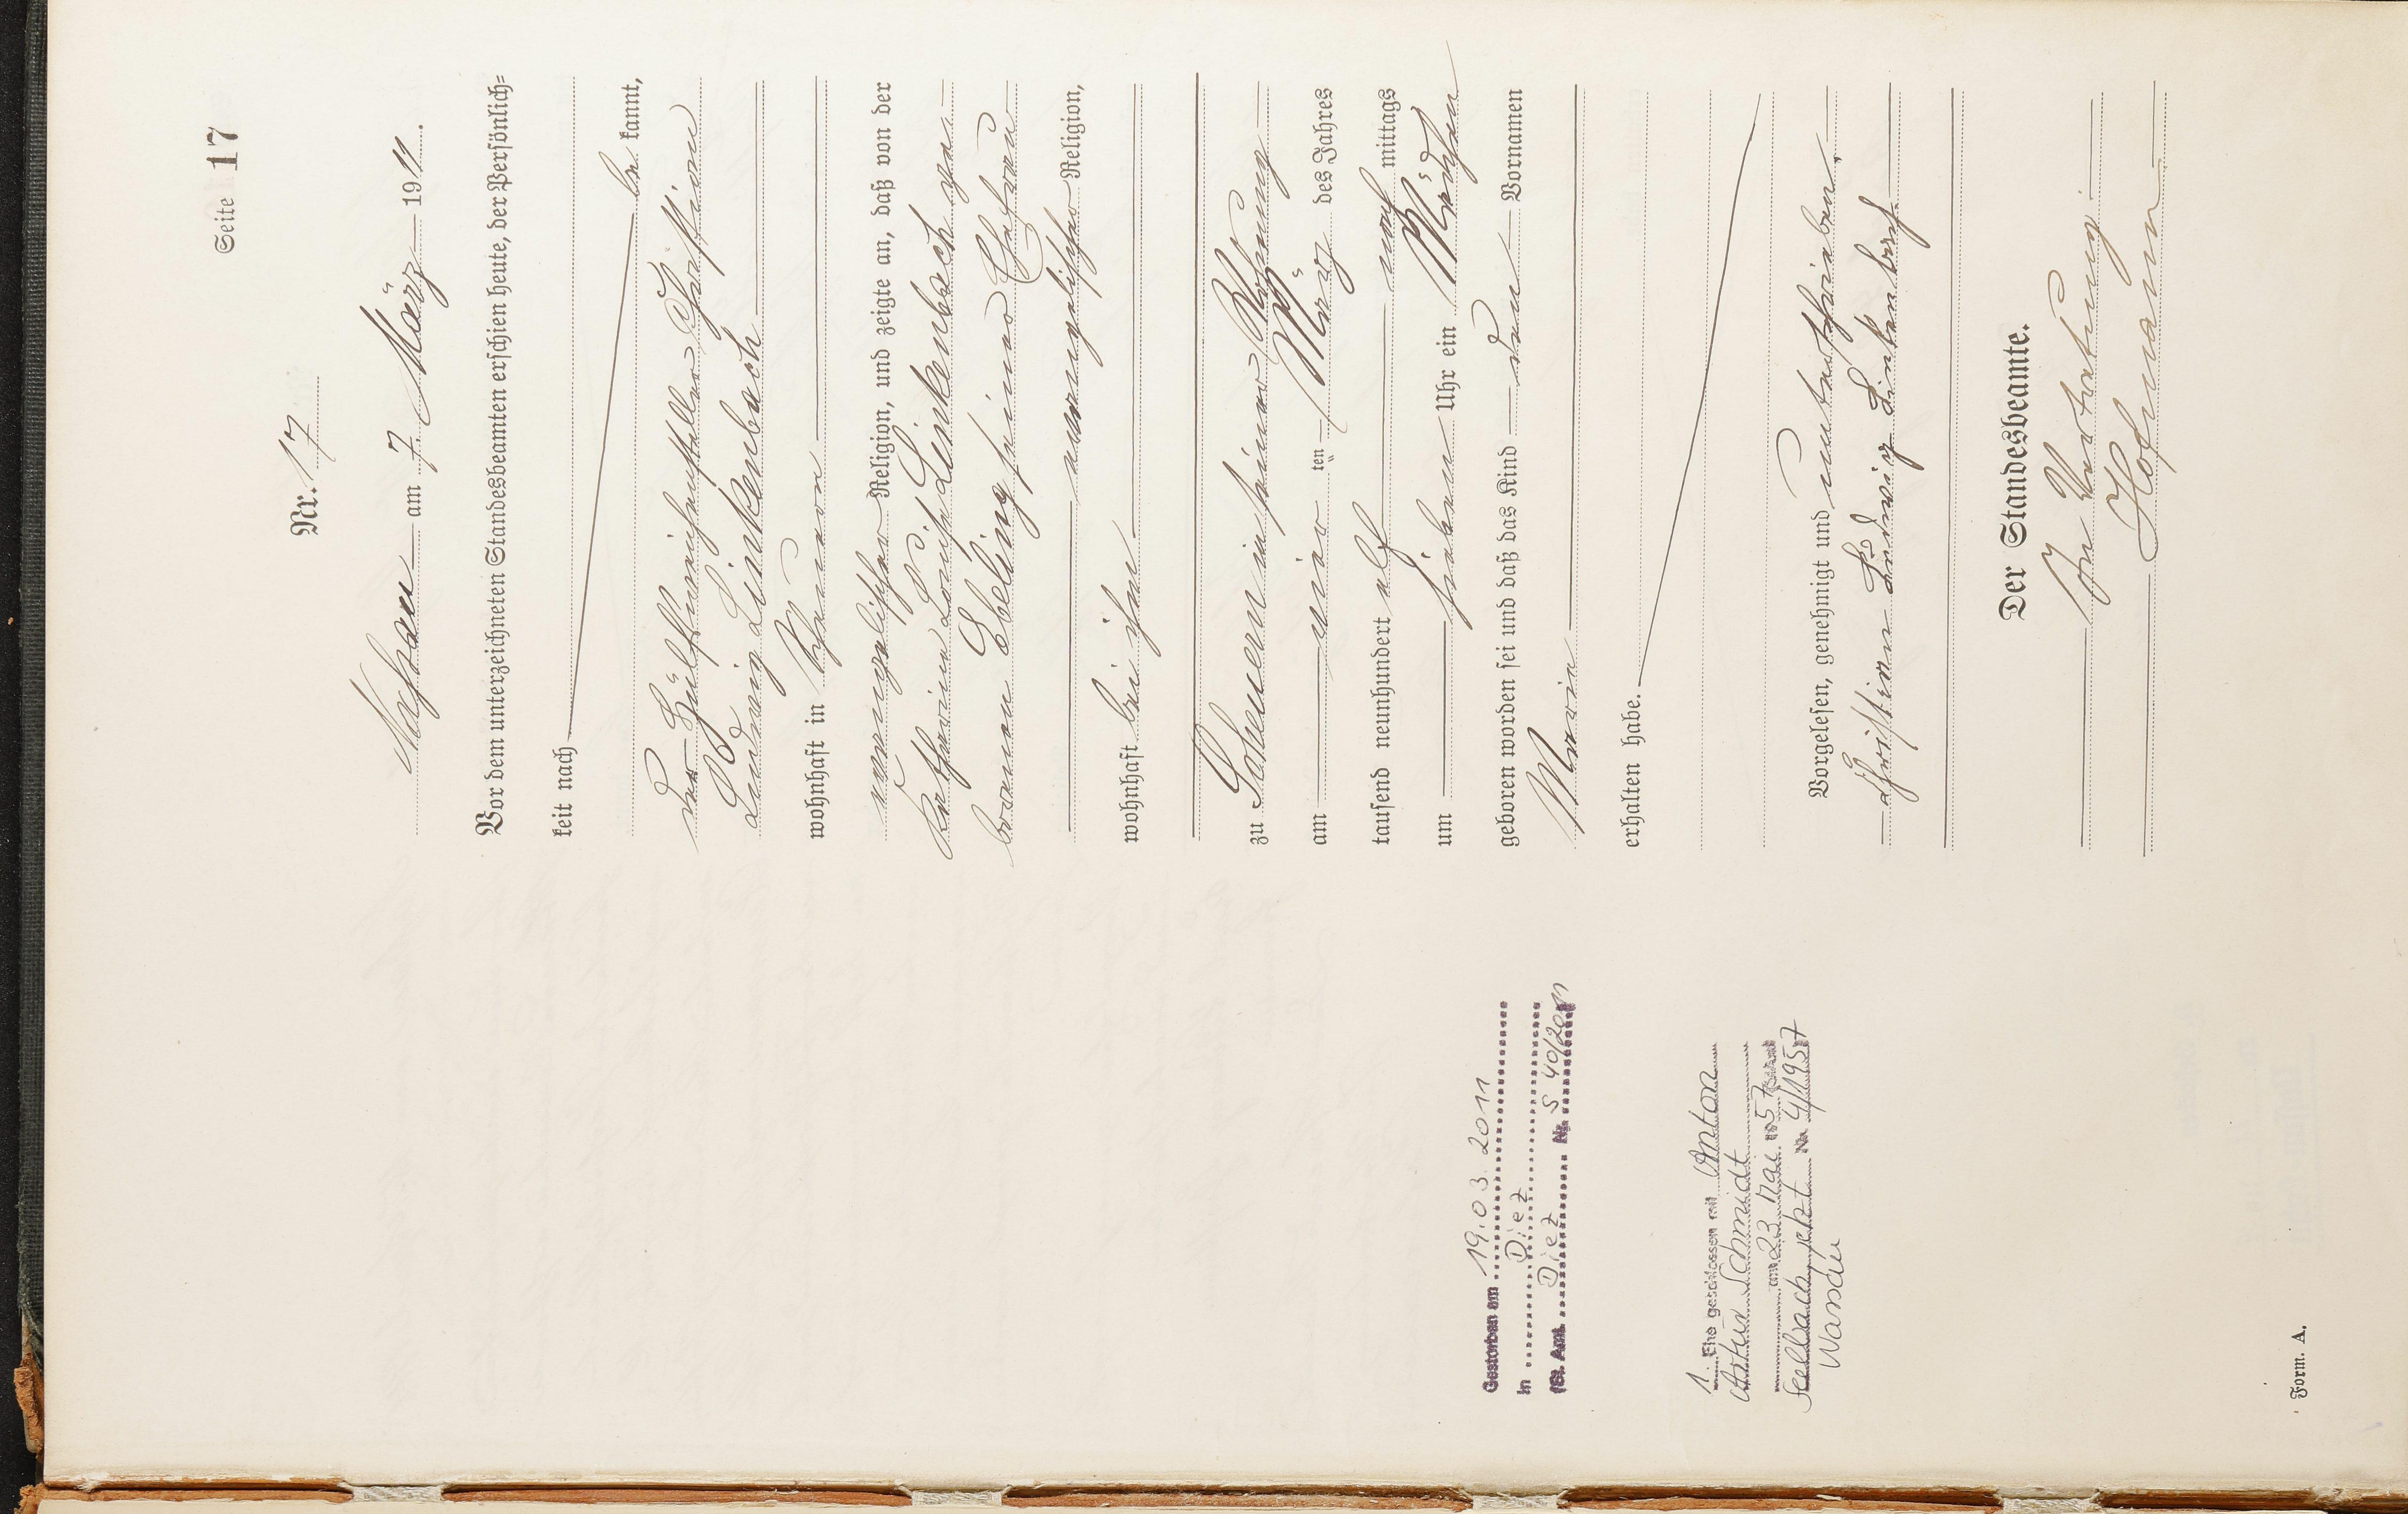 Seite 17
Nr. 17
Nassau am 7. März 1911.
Vor dem unterzeichneten Standesbeamten erschien heute, der Persönlich=
keit nach
be kannt,
der Hülfsweichensteller Christian
Ludwig Linkenbach
wohnhaft in Scheuern
evangelischer Religion, und zeigte an, daß von der
Katharina Louise Linkenbach ge=
borenen Ebeling seiner Ehefrau
evangelischer Religion,
wohnhaft bei ihm
zu Scheuern in seiner Wohnung
am vier ten März des Jahres
tausend neunhundert elf nach mittags
um sieben Uhr ein Mädchen
geboren worden sei und daß das Kind den Vornamen
Maria
erhalten habe.
Vorgelesen, genehmigt und unterschrieben.
Christian Ludwig Linkenbach
Der Standesbeamte.
In Vertretung:
Hofmann
Gestorben am 19.03.2011
in Diez
(St. Amt Diez Nr. S 40/2011
1. Ehe geschlossen mit Anton
Artur Schmidt
am 23. Mai 1957
Seelbach, jetzt Nr. 4/1957
Nassau
Form. A.